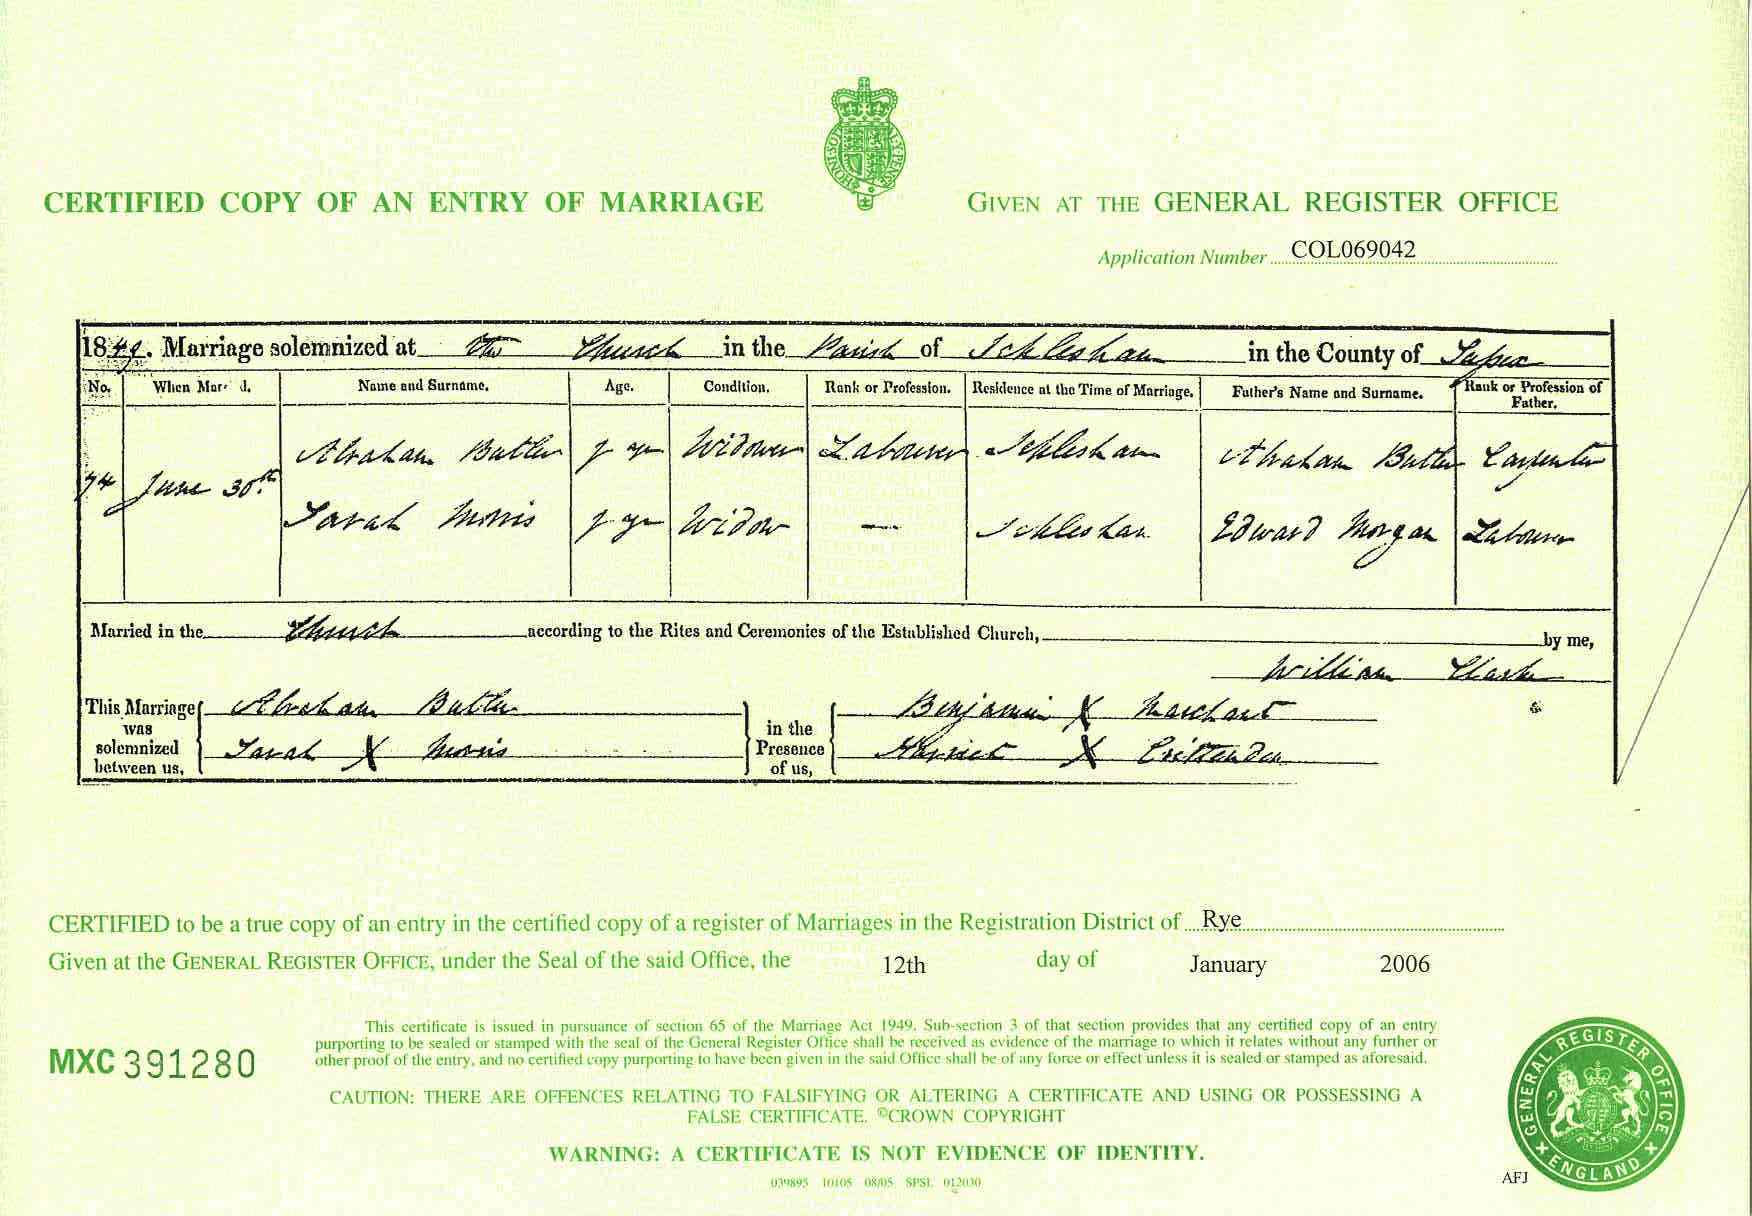 CERTIFIED COPY OF AN ENTRY OF MARRIAGE
GIVEN AT THE GENERAL REGISTER OFFICE
Application Number COL069042
1849. Marriage solemnized at the Church in the Parish of Icklesham in the County of Sussex
No. When Married. Name and Surname. Age. Condition. Rank or Profession. Residence at the Time of Marriage. Father's Name and Surname. Rank or Profession of Father.
74 June 30th
Abraham Butler f age Widower Labourer Icklesham Abraham Butler Carpenter
Sarah Morris f age Widow — Icklesham Edward Morgan Labourer
Married in the Church according to the Rites and Ceremonies of the Established Church, by me,
William Clarke
This Marriage was solemnized between us,
Abraham Butler
Sarah X Morris
in the Presence of us,
Benjamin X Marchant
Harriet X Crittenden
CERTIFIED to be a true copy of an entry in the certified copy of a register of Marriages in the Registration District of Rye
Given at the GENERAL REGISTER OFFICE, under the Seal of the said Office, the 12th day of January 2006
MXC 391280
This certificate is issued in pursuance of section 65 of the Marriage Act 1949. Sub-section 3 of that section provides that any certified copy of an entry
purporting to be sealed or stamped with the seal of the General Register Office shall be received as evidence of the marriage to which it relates without any further or
other proof of the entry, and no certified copy purporting to have been given in the said Office shall be of any force or effect unless it is sealed or stamped as aforesaid.
CAUTION: THERE ARE OFFENCES RELATING TO FALSIFYING OR ALTERING A CERTIFICATE AND USING OR POSSESSING A
FALSE CERTIFICATE. ©CROWN COPYRIGHT
WARNING: A CERTIFICATE IS NOT EVIDENCE OF IDENTITY.
039895 10105 08/05 SPSL 012030
GENERAL REGISTER OFFICE
ENGLAND
AFJ